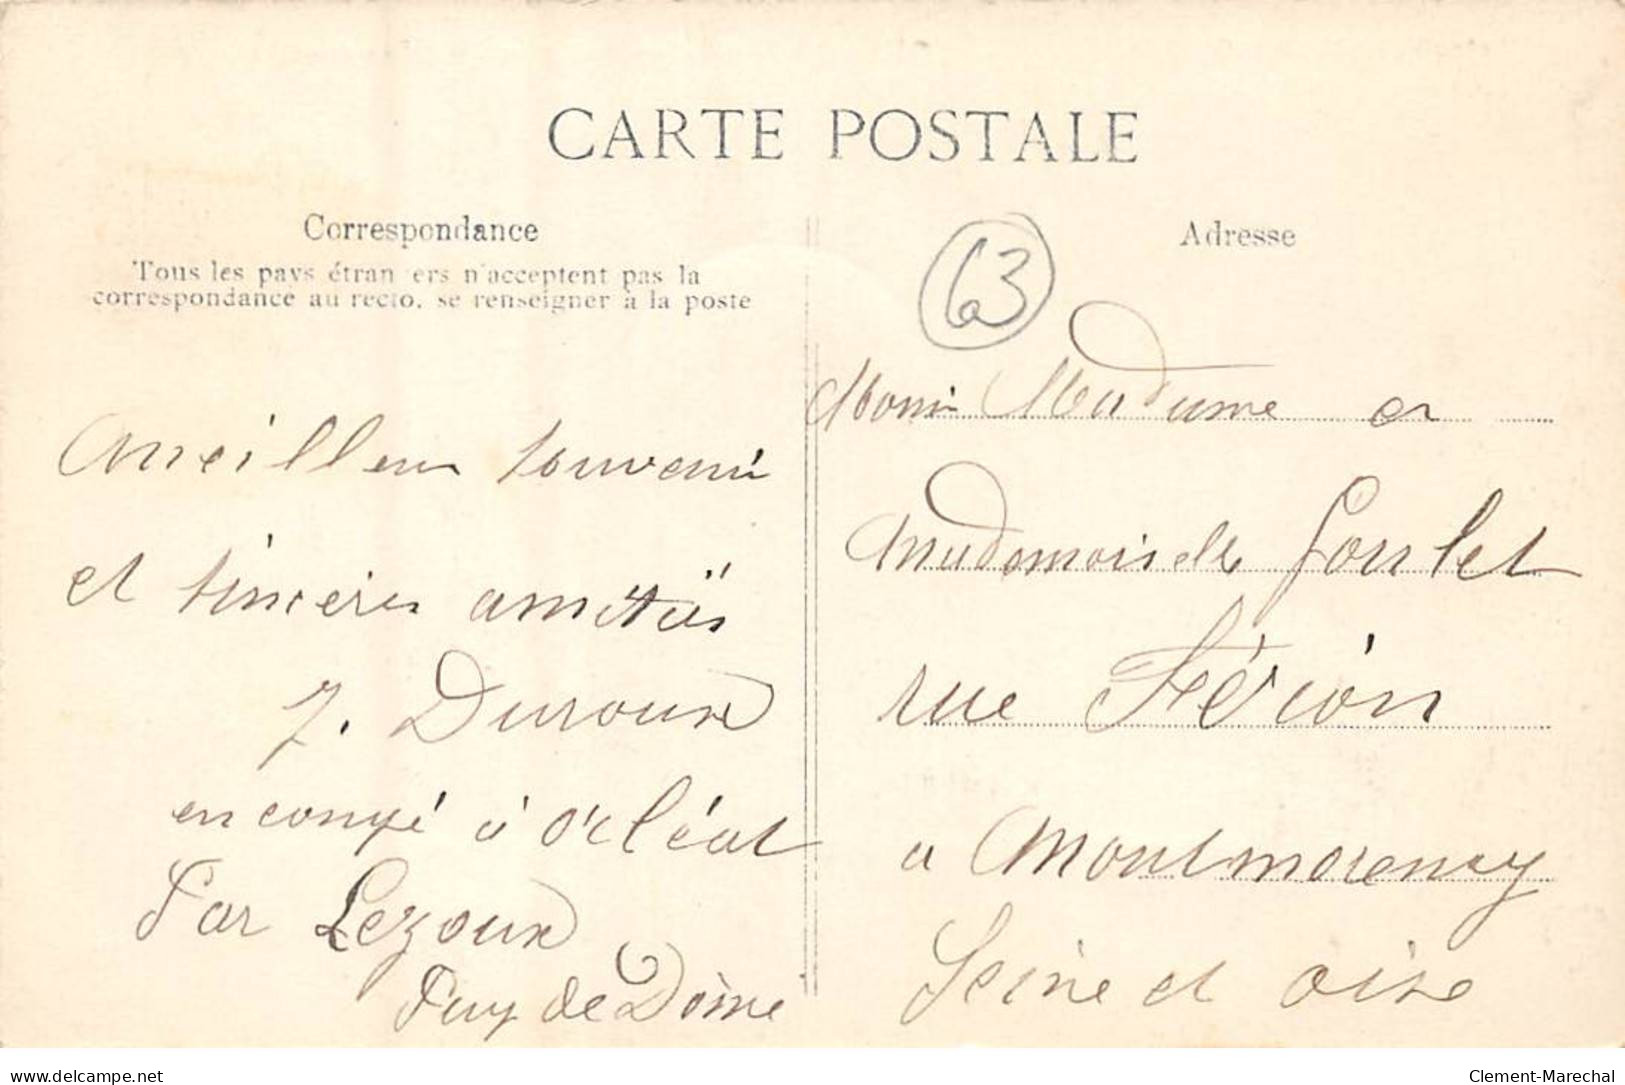 CARTE POSTALE
Correspondance
Tous les pays étran ers n'acceptent pas la
correspondance au recto. se renseigner à la poste
meilleur souvenir
et sincères amitiés
J. Duroux
en congé à Orléat
Par Lezoux
Puy de Dôme
Adresse
63
Madame et
Mademoiselle Goulet
rue
a Montmorency
Seine et oise
www.delcampe.net
Clement-Marechal